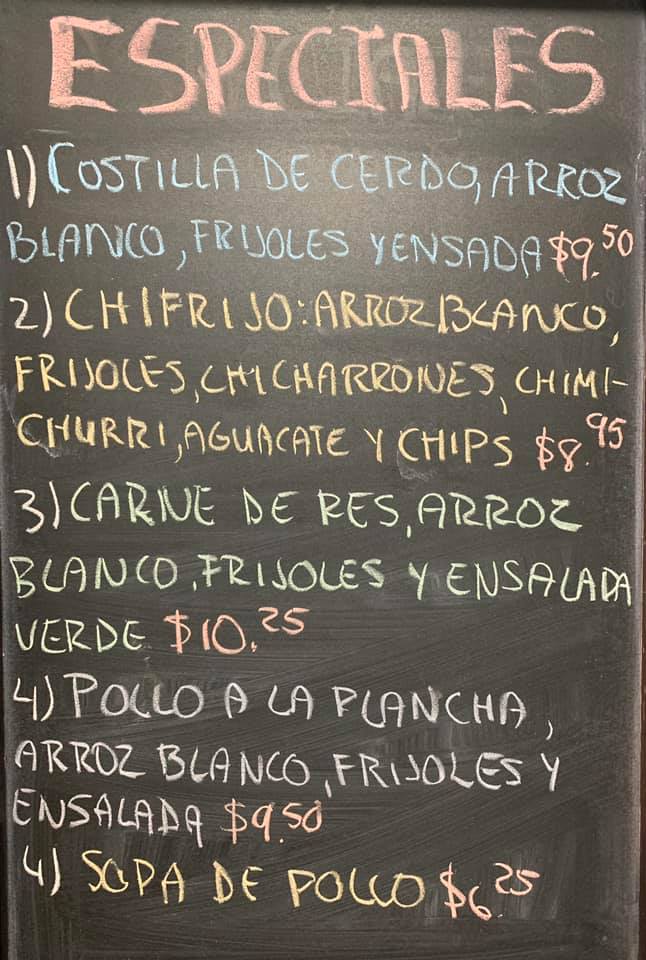 ESPECIALES
1) COSTILLA DE CERDO, ARROZ
BLANCO, FRIJOLES Y ENSADA $9.50
2) CHIFRIJO: ARROZ BLANCO,
FRIJOLES, CHICHARRONES, CHIMI-
CHURRI, AGUACATE Y CHIPS $8.95
3) CARNE DE RES, ARROZ
BLANCO, FRIJOLES Y ENSALADA
VERDE $10.25
4) POLLO A LA PLANCHA,
ARROZ BLANCO, FRIJOLES Y
ENSALADA $9.50
4) SOPA DE POLLO $6.25